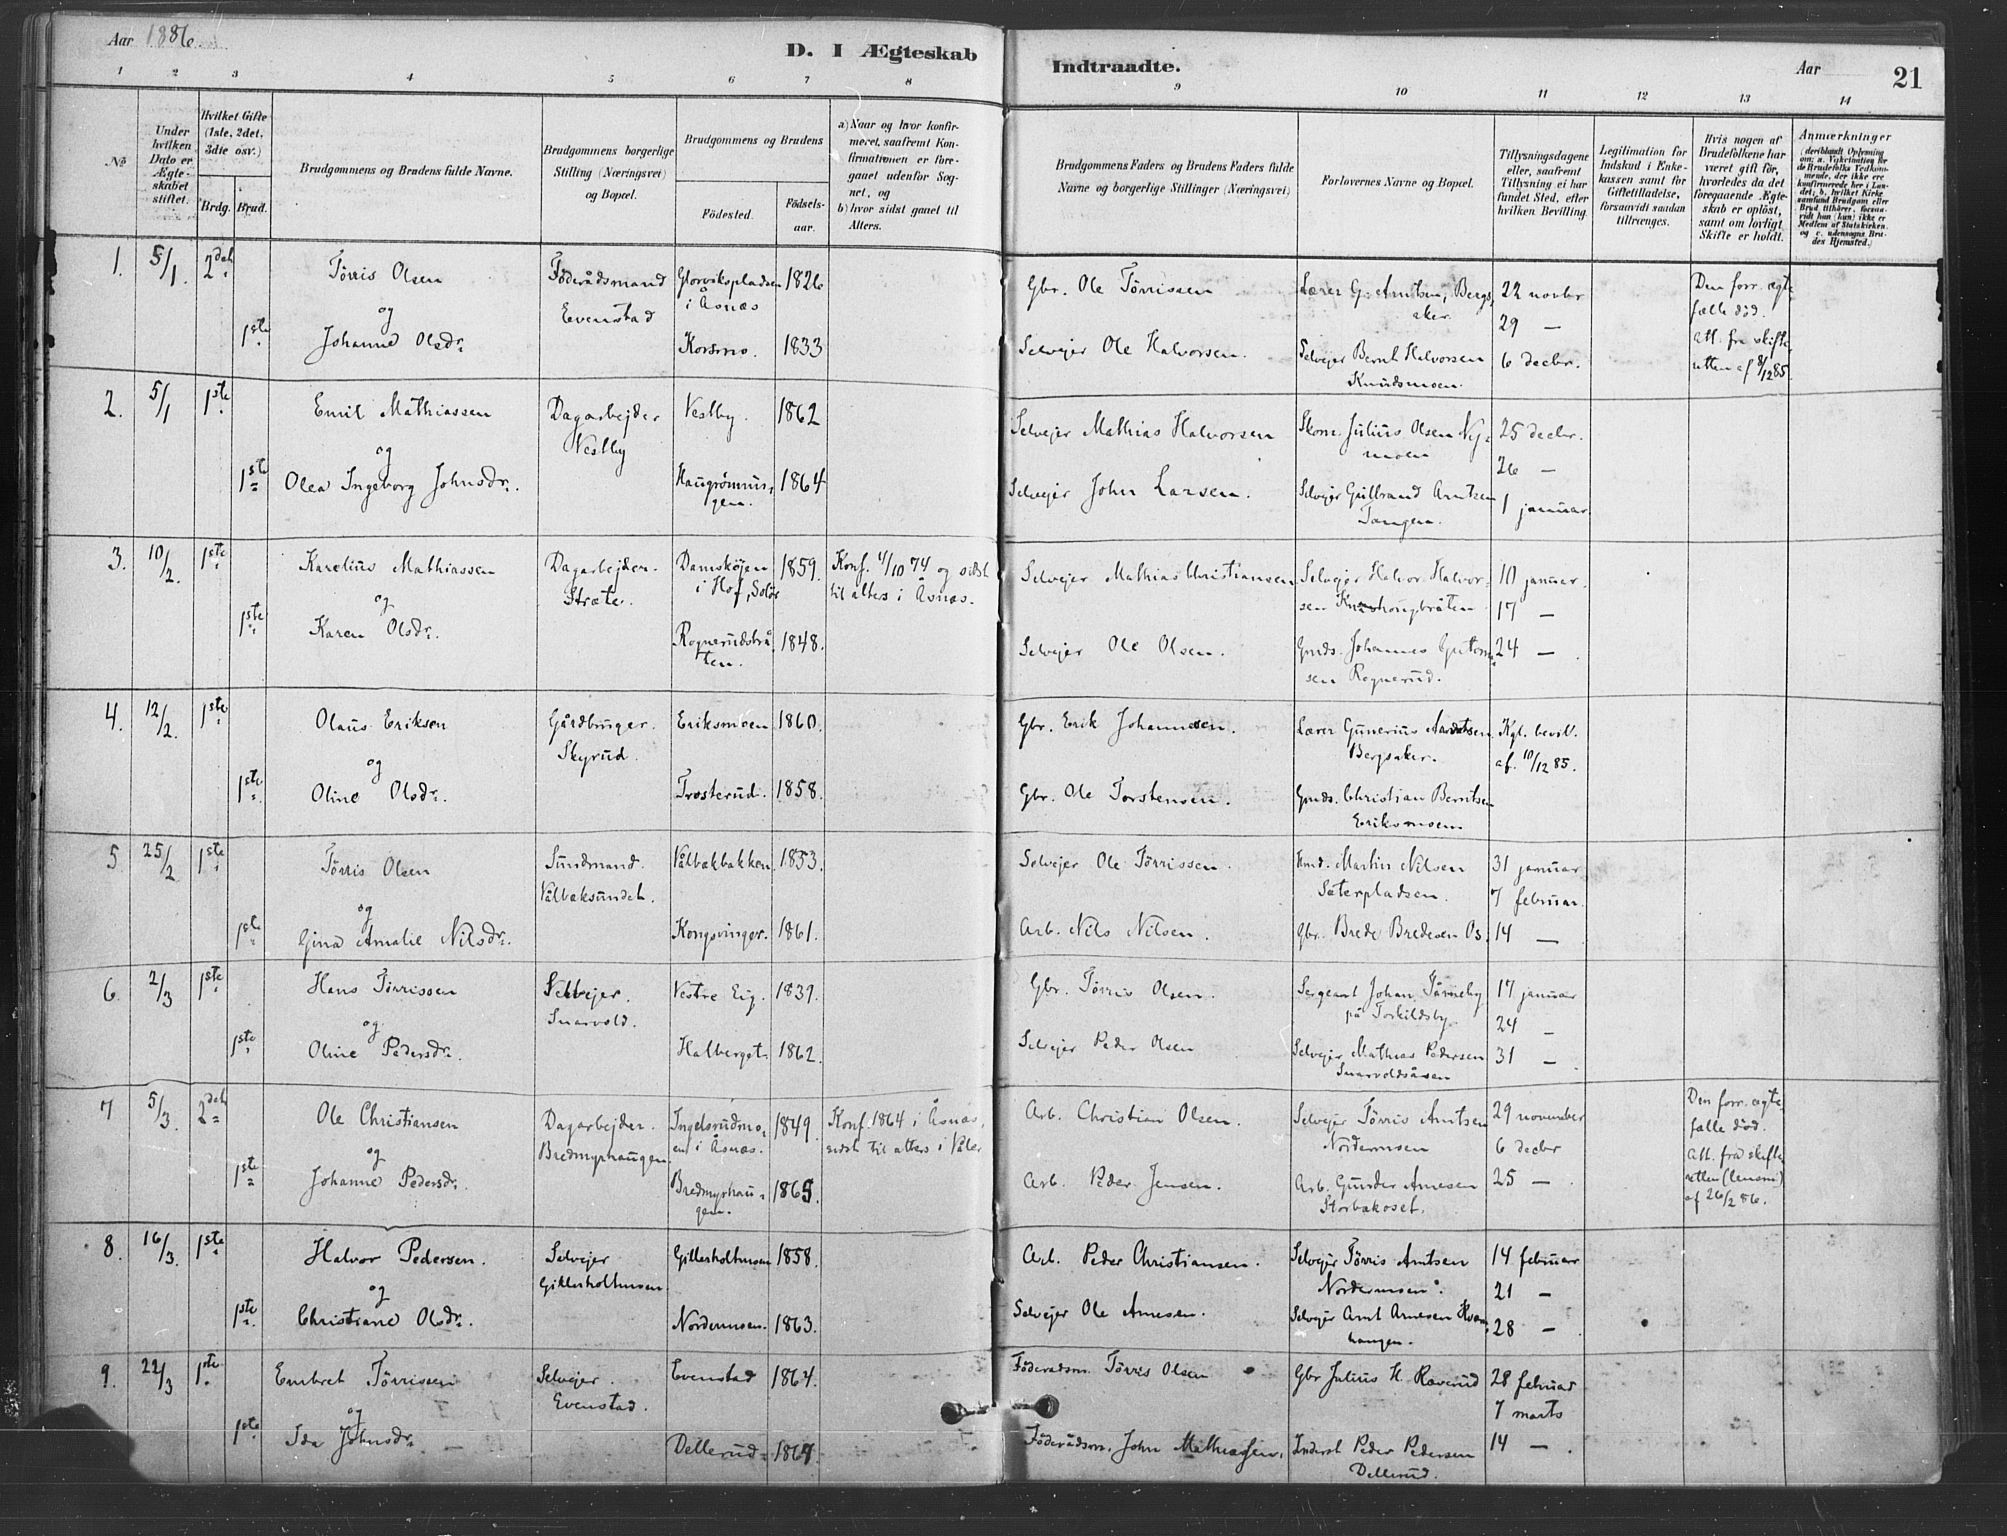 Aar 1886
D. I Ægteskab
Indtraadte.
Aar
21
1 2 3 4 5 6 7 8 9 10 11 12 13 14
No
Under hvilken Dato er Ægteskabet stiftet.
Hvilket Gifte (1ste, 2det, 3die osv.)
Brdg. Brud.
Brudgommens og Brudens fulde Navne.
Brudgommens borgerlige Stilling (Næringsvei) og Bopæl.
Brudgommens og Brudens
Fødested. Fødselsaar.
a) Naar og hvor konfirmeret, saafremt Konfirmationen er foregaaet udenfor Sognet, og
b) hvor sidst gaaet til Alters.
Brudgommens Faders og Brudens Faders fulde Navne og borgerlige Stillinger (Næringsvei)
Forlovernes Navne og Bopæl.
Tillysningsdagene eller, saafremt Tillysning ei har fundet Sted, efter hvilken Bevilling.
Legitimation for Indskud i Enkekassen samt for Giftetilladelse, forsaavidt saadan tiltrænges.
Hvis nogen af Brudefolkene har været gift før, hvorledes da det foregaaende Ægteskab er opløst, samt om lovligt Skifte er holdt.
Anmærkninger
1. 5/1 2det Tørris Olsen Föderådsmand Evenstad Glorvikspladsen i Åsnæs 1826 Gbr. Ole Tørrissen Lærer G. Arntsen, Bergsaker 22 novbr Den forr. ægtefælle död. Att. fra skifteretten af 8/12 85.
og 29 —
1ste Johanne Olsdr. Korsmo. 1833 Selvejer Ole Halvorsen. Selvejer Bernt Halvorsen Knudsmoen. 6 decbr.
2. 5/1 1ste Emil Mathiassen Dagarbejder Vestby Vestby. 1862 Selvejer Mathias Halvorsen Skom. Julius Olsen Nymoen 25 decbr.
og 26 —
1ste Olea Ingeborg Johnsdr. Haugrømningen. 1864 Selvejer John Larsen. Selvejer Gulbrand Arntsen Tangen. 1 januar
3. 10/2. 1ste Karelius Mathiassen Dagarbejder. Stræte. Damskøjen i Hof, Solør 1859. Konf. 4/10 74 og sidst til alters i Åsnæs. Selvejer Mathias Christiansen Selvejer Halvor Halvorsen 10 januar.
og 17 —
1ste Karen Olsdr. Rognerudsbråten. 1848. Selvejer Ole Olsen. Gmds. Johannes Guttormsen Rognerud. 24 —
4. 12/2. 1ste Olaus Eriksen Gårdbruger. Skyrud. Eriksmoen 1860. Gbr. Erik Johannesen. Lærer Gunerius Arntsen Bergsaker. Kgl. bevil. af. 10/12 85.
og
1ste Oline Olsdr. Trosterud. 1858. Gbr. Ole Torstensen. Gmds. Christian Berntsen Eriksmoen
5 25/2 1ste Tørris Olsen Sundmand. Vålbæksundet. Vålbækbakken. 1853. Selvejer Ole Tørrissen. Martin Nilsen Sæterpladsen. 31 januar
og 7 februar.
1ste Gina Amalie Nilsdr. Kongsvinger. 1861. Arb. Nils Nilsen. Gbr. Brede Bredesen Os. 14 —
6. 2/3 1ste Hans Tørrissen Selvejer. Snarvold. Vestre Eig. 1839. Gbr. Tørris Olsen. Sergeant Johan Tårneby på Torkildsby 17 januar
og 24 —
1ste Oline Pedersdr. Halberget. 1862. Selvejer Peder Olsen Selvejer Mathias Pedersen Snarvoldsåsen 31 —
7 5/3. 2det Ole Christiansen Dagarbejder. Bredmyrhaugen Ingelsrudmoen i Åsnæs. 1849. Konf. 1864 i Åsnæs, sidst til alters i Våler Arb. Christian Olsen. Selvejer Tørris Arntsen Nordermoen 29 november Den forr. ægtefælle död. Att. fra skifteretten (lensm) af 26/2 86.
og 6 decbr
1ste Johanne Pedersdr. Bredmyrhaugen. 1865. Arb. Peder Jensen. Arb. Gunder Arnesen Storbakoset. 25 —
8. 16/3. 1ste Halvor Pedersen. Selvejer Gillerholtmoen Gillerholtmoen 1858. Arb. Peder Christiansen. Selvejer Tørris Arntsen Nordermoen. 14 februar
og 21 —
1ste Christiane Olsdr. Nordermoen. 1863. Selvejer Ole Arnesen. Selvejer Arnt Arnesen 28 —
9. 22/3 1ste Embret Tørrissen Selvejer. Evenstad. Evenstad 1864. Föderadsm. Tørris Olsen Gbr Julius H. Raverud 28 februar
og 7 marts
1ste Ida Johnsdr. Dellerud. 1864. Föderådsm. John Mathiassen. Inderst Peder Pedersen Dellerud. 14 —